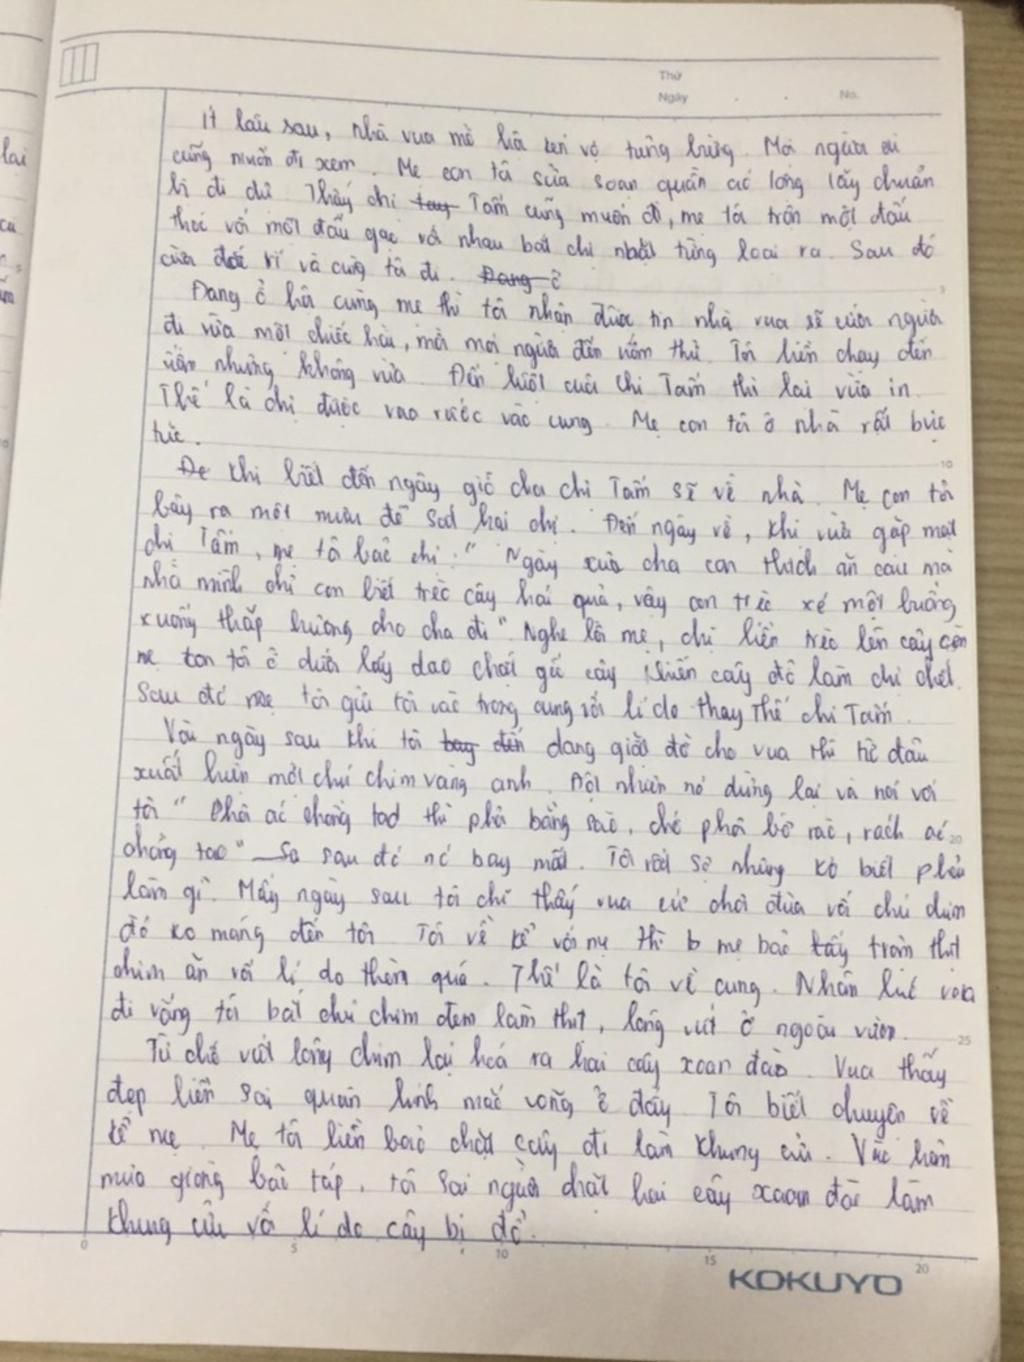 Thứ
Ngày . . No.
Ít lâu sau, nhà vua mở hội kén vợ tưng bừng. Mọi người ai
cũng muốn đi xem. Mẹ con tôi sửa soạn quần áo lộng lẫy chuẩn
bị đi dự. Thấy chị tay Tấm cũng muốn đi, mẹ tôi trộn một đấu
thóc với một đấu gạo với nhau bắt chị nhặt từng loại ra. Sau đó
của và cùng tôi đi. Đang ở
Đang ở hội cùng mẹ thì tôi nhận được tin nhà vua sẽ cưới người
đi vừa một chiếc hài, mời mọi người đến ướm thử. Tôi liền chạy đến
nhưng không vừa. Đến lượt cuối chị Tấm thì lại vừa in.
Thế là chị được vào rước vào cung. Mẹ con tôi ở nhà rất bực
tức.
Để khi biết đến ngày giỗ cha chị Tấm sẽ về nhà. Mẹ con tôi
bày ra một mưu để hại chị. Đến ngày về, khi vừa gặp mặt
chị Tấm, mẹ tôi bảo chị: "Ngày xưa cha con thích ăn cau mà
nhà mình chỉ con biết trèo cây hái quả, vậy con trèo xé một buồng
xuống thắp hương cho cha đi". Nghe lời mẹ, chị liền trèo lên cây còn
mẹ con tôi ở dưới lấy dao chặt gốc cây khiến cây đổ làm chị chết.
Sau đó mẹ tôi gửi tôi vào trong cung với lí do thay thế chị Tấm.
Vài ngày sau khi tôi bay đến đang giặt đồ cho vua thì từ đâu
xuất hiện một chú chim vàng anh. Đột nhiên nó dừng lại và nói với
tôi "Phơi áo chồng tao thì phơi bằng sào, chớ phơi bờ rào, rách áo
chồng tao" Sa sau đó nó bay mất. Tôi rất sợ nhưng ko biết phải
làm gì. Mấy ngày sau tôi chỉ thấy vua cứ chơi đùa với chú chim
đó ko màng đến tôi. Tôi về kể với mẹ thì b mẹ bảo lấy trộm thịt
chim ăn với lí do thèm quá. Thế là tôi về cung. Nhân lúc vua
đi vắng tôi bắt chú chim đem làm thịt, lông vứt ở ngoài vườn.
Từ chỗ vứt lông chim lại hoá ra hai cây xoan đào. Vua thấy
đẹp liền sai quân lính mắc võng ở đấy. Tôi biết chuyện về
kể mẹ. Mẹ tôi liền bảo chặt cây đi làm khung cửi. Vào hôm
mưa giông bão táp, tôi sai người chặt hai cây xoan đào làm
khung cửi với lí do cây bị đổ.
0 5 10 15 20
5
10
20
25
KOKUYO